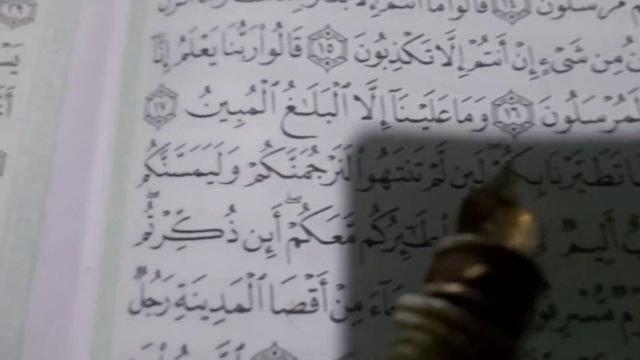 مُّرْسَلُونَ ۝١٤ قَالُوا۟ مَآ أَنتُمْ إِلَّا
مِن شَىْءٍ إِنْ أَنتُمْ إِلَّا تَكْذِبُونَ ۝١٥ قَالُوا۟ رَبُّنَا يَعْلَمُ إِنَّآ
لَمُرْسَلُونَ ۝١٦ وَمَا عَلَيْنَآ إِلَّا ٱلْبَلَـٰغُ ٱلْمُبِينُ ۝١٧
تَطَيَّرْنَا بِكُمْ ۖ لَئِن لَّمْ تَنتَهُوا۟ لَنَرْجُمَنَّكُمْ وَلَيَمَسَّنَّكُم
أَلِيمٌ طَـٰٓئِرُكُم مَّعَكُمْ ۚ أَئِن ذُكِّرْتُم ۚ
مُّسْرِفُونَ مِنْ أَقْصَا ٱلْمَدِينَةِ رَجُلٌ